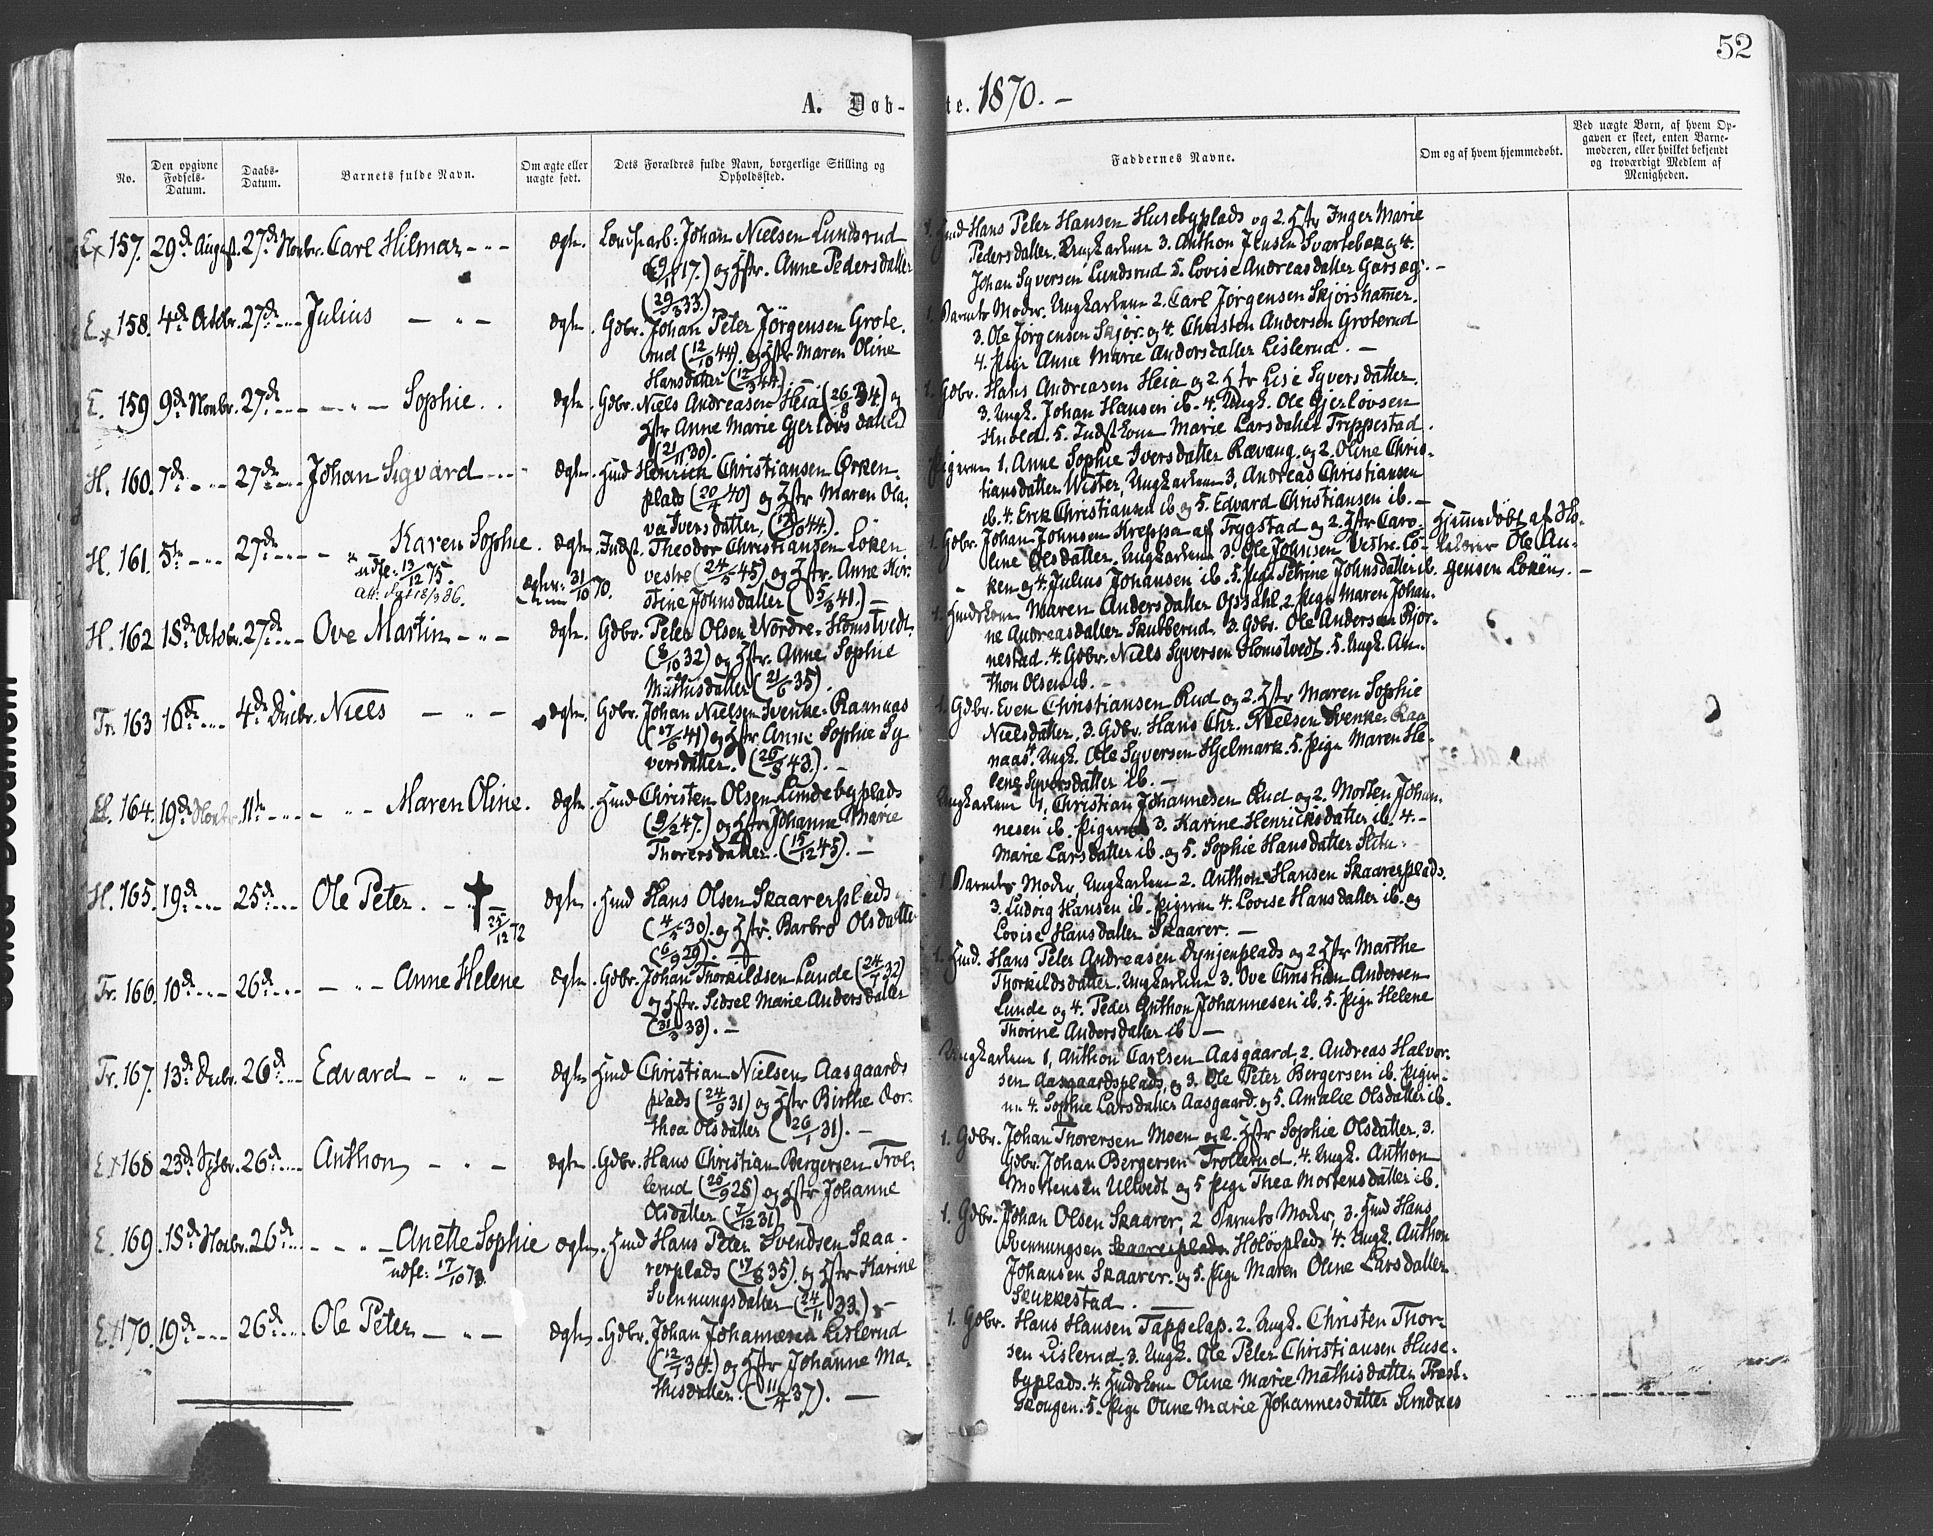 52
A. Døb- te. 1870. -
No.
Den opgivne Fødsels-Datum.
Daabs-Datum.
Barnets fulde Navn.
Om ægte eller uægte født.
Dets Forældres fulde Navn, borgerlige Stilling og Opholdssted.
Faddernes Navne.
Om og af hvem hjemmedøbt.
Ved uægte Børn, af hvem Opgaven er skeet, enten Barnemoderen, eller hvilket bekjendt og troværdigt Medlem af Menigheden.
157. 29de August. 27de Novbr. Carl Hilmar - " - ægte. Johan Nielsen Lundsrud
(9/11 17.) og Hstr. Anne Pedersdatter
(29/3 33.)
Hmd Hans Peter Hansen Husebyplads og 2. Hstr Inger Marie
Pedersdatter. Ungkarlene 3. Anthon Jensen Svartebæk og 4.
Johan Syversen Lundsrud 5. Lovise Andreasdatter
E. 158. 4de Octobr. 27de - Julius - " - ægte. Gdbr. Johan Peter Jörgensen Grote-
rud (12/10 44). og Hstr Maren Oline
Hansdatter (12/3 44.)
1. Barnets Moder. Ungkarlene 2. Carl Jørgensen Skjørshamer.
3. Ole Jørgensen Skjør. og 4. Christen Andersen Groterud
4. Pige Anne Marie Andersdatter Lislerud. -
E. 159 9de Novbr. 27de - " - Sophie. ægte. Gdbr. Niels Andreasen Heia (26/8 34.) og
Hstr Anne Marie Gjerlövsdatter
(21/11 30).
1. Gdbr. Hans Andreasen Heia og 2 Hstr Lise Syversdatter.
3. Ungk. Johan Hansen ib. 4. Ungk. Ole Gjerlövsen
5. Indstkone Marie Larsdatter Trippestad.
H. 160. 7de - 27de - Johan Sigvard - ægte. Hmd Henrich Christiansen Ørken-
plads (20/4 40) og Hstr Maren Ola-
va Iversdatter, 44.).
Pigerne 1. Anne Sophie Iversdatter Rævaug. og 2. Oline Chris-
tiansdatter Wister, Ungkarlene 3. Andreas Christiansen
ib. 4. Erik Christiansen ib og 5. Edvard Christiansen ib. -
H. 161. 5te - 27de - " - Karen Sophie. ægte. Indst. Theodor Christiansen Löken
udfl. 13/12 75.
Att. 86.
31/10 70.
vestre (24/5 45) og Hstr. Anne Kir-
stine Johnsdatter (5/3 41.) -
1. Gdbr. Johan Johnsen Kreppa af Trygstad og 2. Hstr Caro-
line Olsdatter. Ungkarlene 3. Ole Johnsen Vestre-Lö-
ken og 4. Julius Johansen ib. 5. Pige Petrine Johnsdatter ib.
Hjemmedøbt af Sko-
lelærer Ole Au-
gensen Löken. -
H. 162 18de Octobr. 27de - Ove Martin - " - ægte. Gdbr. Peter Olsen Nordre-Homstvedt
(8/10 32) og Hstr. Anne Sophie
Mathisdatter (21/6 35).
1. Hmdskone Maren Andersdatter Opsahl. 2. Pige Maren Johan-
ne Andreasdatter Skubberud. 3. Gdbr. Ole Andersen Bjør-
nestad. 4. Gdbr. Niels Syversen Homstvedt. 5. Ungk. An-
thon Olsen ib. -
Tr. 163 16de - 4de Decbr. Niels - " - ægte. Gdbr. Johan Nielsen Svenke-Raanaas
(17/6 41) og Hstr. Anne Sophie Sy-
versdatter. (26/8 43.). -
1. Gdbr. Even Christiansen Rud og 2. Hstr Maren Sophie
Nielsdatter, 3. Gdbr. Hans Chr. Nielsen Svenke-Raa-
naas. Ungk. Ole Syversen Hjelmark. 5. Pige Maren He-
lene Syversdatter ib. -
164. 19de Novbr. 11te - " - Maren Oline. ægte. Hmd Christen Olsen Lundebyplads
(9/2 47.) og Hstr Johanne Marie
Thorersdatter. (15/12 45). -
Ungkarlene 1. Christian Johannesen Rud og 2. Morten Johan-
nesen ib. Pigerne 3. Karine Henriksdatter ib. 4. -
Marie Larsdatter ib. og 5. Sophie Hansdatter
H. 165. 19de - 25de - Ole Peter. - " - ægte. Hmd Hans Olsen Skaarerplads
25/12 72
(4/5 30). og Hstr. Barbro Olsdatter
(6/9 29).
1 Barnets Moder, Ungkarlene 2. Anthon Hansen Skaarerplads.
3. Ludvig Hansen ib. Pigerne 4. Lovise Hansdatter ib. og
Lovise Hansdatter Skaarer. -
Tr. 166. 10de - 26de - " - Anne Helene ægte. Gdbr. Johan Thorkildsen Lunde (24/7 32)
og Hstr. Sidsel Marie Andersdatter
(31/3 33). -
1. Hmd. Hans Peter Andreasen Dynjenplads og 2 Hstr Marthe
Thorkildsdatter. Ungkarlene 3. Ove Christian Andersen
Lunde og 4. Peder Anthon Johannesen ib. 5. Pige Helene
Thorine Andersdatter ib. -
Tr. 167. 13de Decbr. 26de - Edvard - " - ægte Hmd Christian Nielsen Aasgaards
plads (24/9 31) og Hstr Birthe Dor-
thea Olsdatter (26/1 31). -
Ungkarlene 1. Anthon Carlsen Aasgaard, 2. Andreas Halvor-
sen Aasgaardsplads, og 3. Ole Peter Bergersen ib. Piger-
ne 4. Sophie Larsdatter Aasgaard. og 5. Amalie Olsdatter ib.
168 23de 26de - Anthon, - " - ægte Gdbr. Hans Christian Bergersen Trol-
lerud (25/9 25) og Hstr Johanne
Olsdatter (7/12 31)
1. Gdbr. Johan Thorersen Moen og 2. Hstr Sophie Olsdatter, 3.
Gdbr. Johan Bergersen Trollerud. 4. Ungk. Anthon
Mortensen Ullvedt og 5 Pige Thea Mortensdatter ib.
E. 169. 18de Novbr. 26de - " - Anette Sophie ægte. Hmd Hans Peter Svendsen Skaa-
udfl:
rerplads (17/8 35). og Hstr Karine
Svenningsdatter (24/11 33.) -
1. Gdbr. Johan Olsen Skaarer, 2 Barnets Moder, 3. Hmd Hans
Svenningsen Skaarerplads Holöwplads 4. Ungk. Anthon
Johansen Skaarer. og 5. Pige Maren Oline Larsdatter
Skukkestad. -
170. 19de - 26de - Ole Peter - " - ægte. Gdbr. Johan Johannesen Lislerud
(12/7 34.) og Hstr Johanne Ma-
thisdatter. (11/4 37). -
1. Gdbr. Hans Hansen Tappelap. 2. Ungk. Christen Thor-
sen Lislerud. 3. Ungk. Ole Peter Christiansen Huse-
byplads. 4. Hmdskone Oline Marie Mathisdatter Præst-
skougen. 5. Pige Oline Marie Johannesdatter